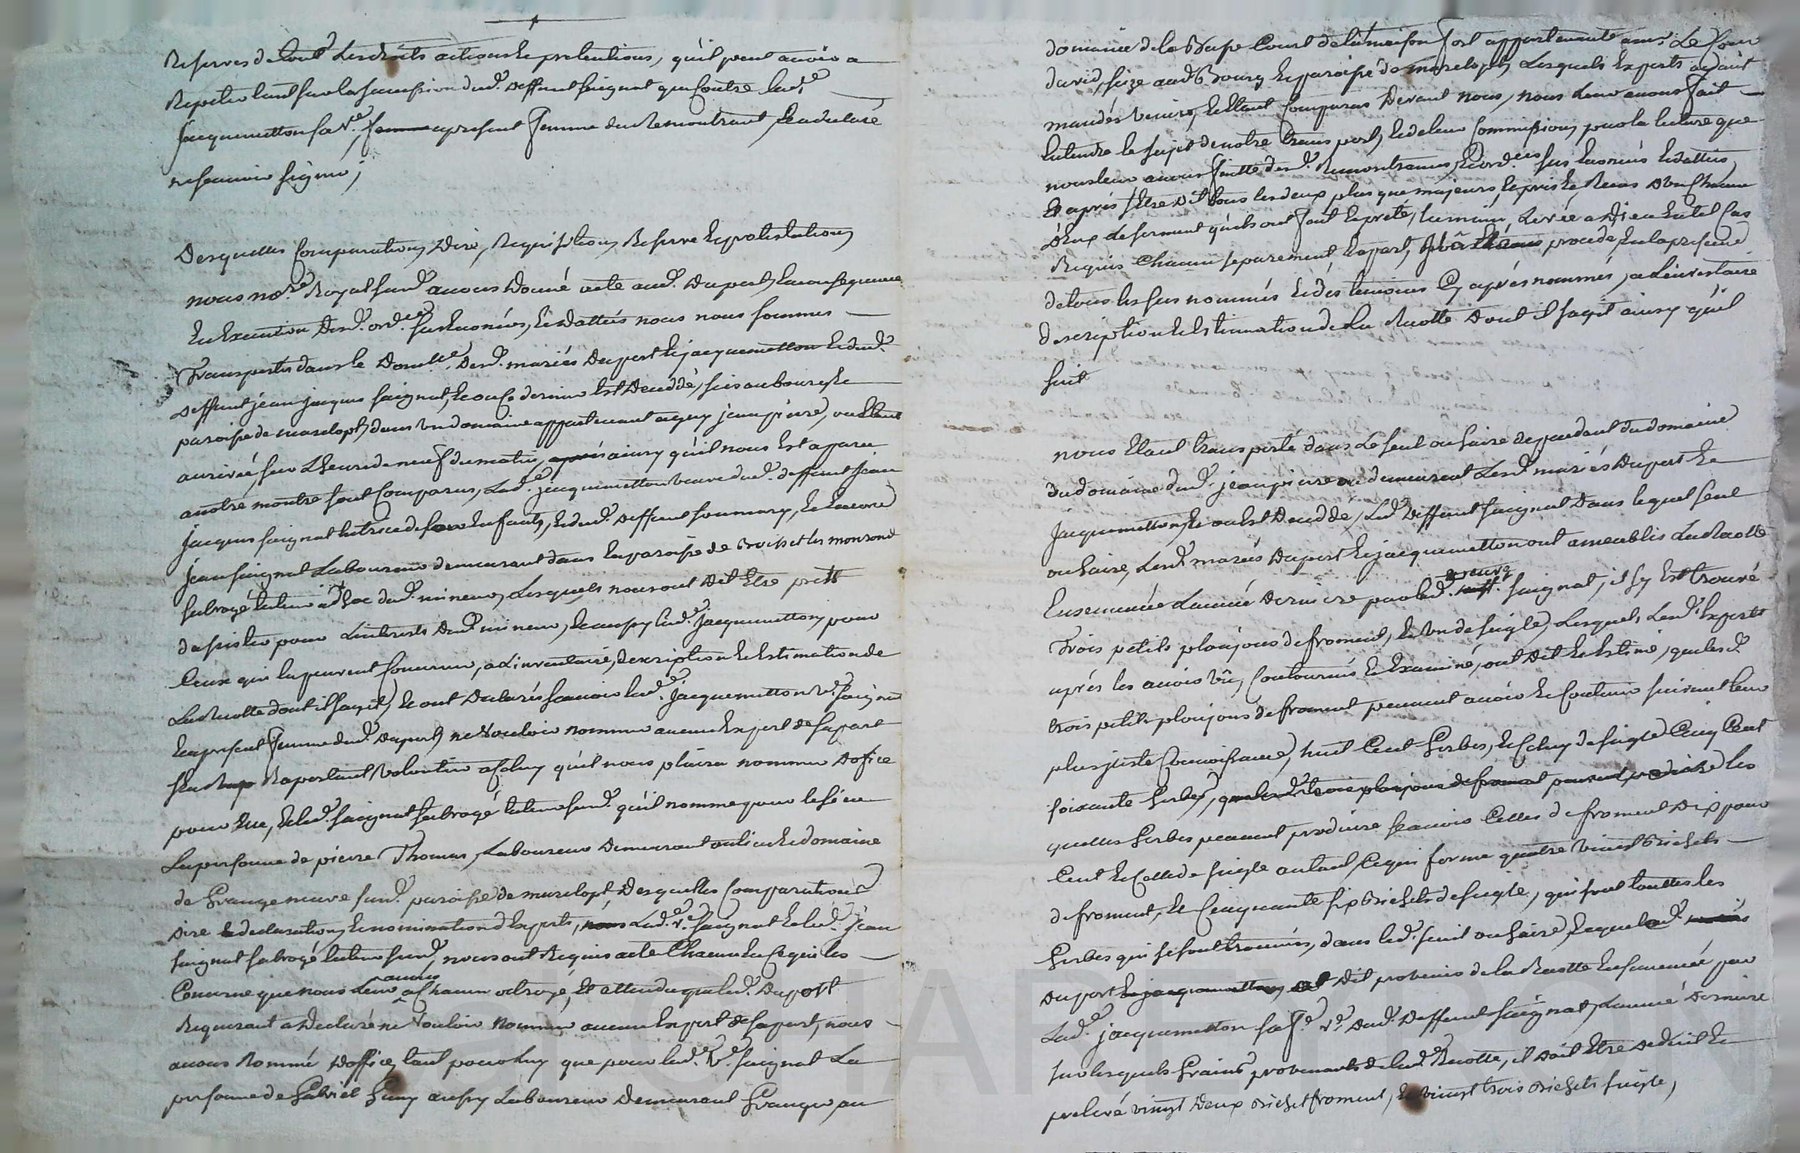 Reserves de tout Les droits actions Et pretentions, qu'il peut avoir a
Repeter tant sur la succession dud. deffunt Saignat que Contre lad.e
Jacquemetton sa v.e, femme a present femme du Remontrant, Et a declaré
ne scavoir signer,
Desquelles Comparution, Dire, Requisition, Reserve Et protestation
nous no.re Royal sus.d avons Donné acte aud. Duport, En consequence
En Execution Desd. ord.ces sus Enoncées, Et dattées nous nous sommes
Transportés dans le Domi.le Desd. mariés Duport Et jacquemetton Et dud.
deffunt jean jacques Saignat, Et ou Ce dernier Est Decedé, sis au bourg Et
paroisse de marclopt dans Un domaine appartenant a jean pierre, ou Etant
arrivés sur L'heure de neuf du matin, ainsy qu'il nous Est apparu
a nôtre montre sont Comparus, Lad.e jacquemetton veuve dud. deffunt jean
jacques Saignat tutrice de Enfants, Et dud. deffunt Et Encore
jean Saignat Laboureur demeurant dans La paroisse de Boisset les monrond
subrogé tuteur ad hoc dud. mineur, Lesquels nous ont Dit Etre prets
d'assister pour L'interets Dud. mineur, Et aussy lad.e Jacquemetton, pour
Ceux qui la peuvent Concerner, a L'inventaire, description Et Estimation de
La Recolte dont il s'agit, Et ont Declarés scavoir lad.e Jacquemetton v.e Saignat
Et a present femme dud. Duport, ne Vouloir nommer aucun Expert de sa part
Raportant Volontier a Celuy qu'il nous plaira nommer D'office
pour Elle, Et led. Saignat subrogé tuteur sus.d qu'il nomme pour le sien
La personne de pierre Thomas, Laboureur Demeurant au lieu Et domaine
de Grange neuve sus.d paroisse de marclopt, Desquelles Comparutions
Dire Et declaration, Et nomination d'Experts, Lad.e v.e Saignat Et led. jean
Saignat subrogé tuteur sus.d, nous ont Requis acte Chacun En Ce qui les
Concerne que nous Leur avons a Chacun octroyé, Et attendu que led. Duport
Requerant a Declaré ne Vouloir Nommer aucun Expert de sa part, nous
avons Nommé D'office, tant pour Luy que pour lad.e V.e Saignat La
personne de Gabriel Guny aussy Laboureur Demeurant Granger au
domaine de la Basse Court de la maison fort appartenante a m.r Le Cour
david, size aud. Bourg Et paroisse de marclopt, Lesquels Experts ayant
mandés Venir, Et Etant Comparus Devant nous, nous Leur avons fait
Entendre le sujet de notre transport, Et de leur Commission, par la lecture que
nous leur avons faitte desd. Remontrances, Et ord.ces sus Enoncées Et dattées,
Et aprés s'Etre Dit tous les deux plus que majeurs, Et pris Et Receu D'un Chacun
D'Eux le serment qu'ils ont fait Et preté, La main Levée a Dieu En tel Cas
Requis Chacun separement, Et a part, procedé, En la presence
de tous les sus nommés Et des temoins Cy aprés nommés, a L'inventaire
description Et Estimation de La Recolte Dont il s'agit ainsy qu'il
suit
nous Etant transporté dans Le seuil ou haire dependant du domaine
du domaine dud. jean pierre ou demeurent Lesd. mariés Duport Et
Jacquemetton, Et ou Est Decedé, Led. deffunt Saignat Dans lequel seuil
ou haire, Lesd. mariés Duport Et jacquemetton ont ameublis La Recolte
Ensemencée L'année Derniere par led. Saignat, il s'y Est trouvé
Trois petits plonjons de froment, Et Un de seigle, Lesquels Lesd. Experts
aprés les avoir vû, Contournés Et Examiné, ont Dit Et Estimé, que lesd.
trois petits plonjons de froment peuvent avoir Et Contenir suivant leur
plus juste Connoissance, huit Cent Gerbes, Et Celuy de seigle Cinq Cent
soixante Gerbes, les
quelles Gerbes peuvent produire scavoir Celles de froment Dix pour
Cent Et Celle de seigle autant, Ce qui forme quatre vingt Bichets
de froment, Et Cinquante six Bichets de seigle, qui sont touttes les
Gerbes qui se sont trouvées, dans led. seuil ou haire, Lequel
Duport Dit provenir de la Recolte Ensemencée par
Lad.e jacquemetton sa f.e v.e Dud. Deffunt Saignat, L'année Derniere
sur lesquels Grains provenants de lad.e Recolte, il Doit Etre Deduit Et
prelevé vingt Deux Bichet froment, Et vingt trois Bichets seigle,